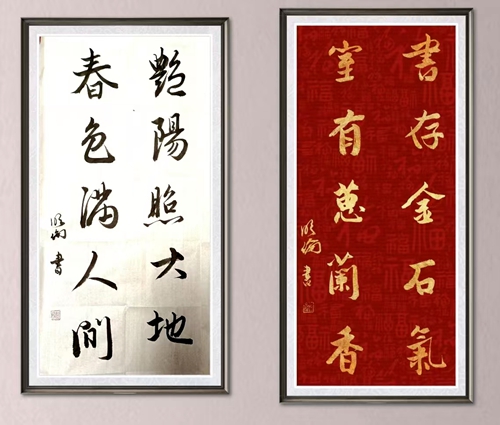 艷陽照大地
春色滿人間
書
書存金石氣
室有蕙蘭香
書